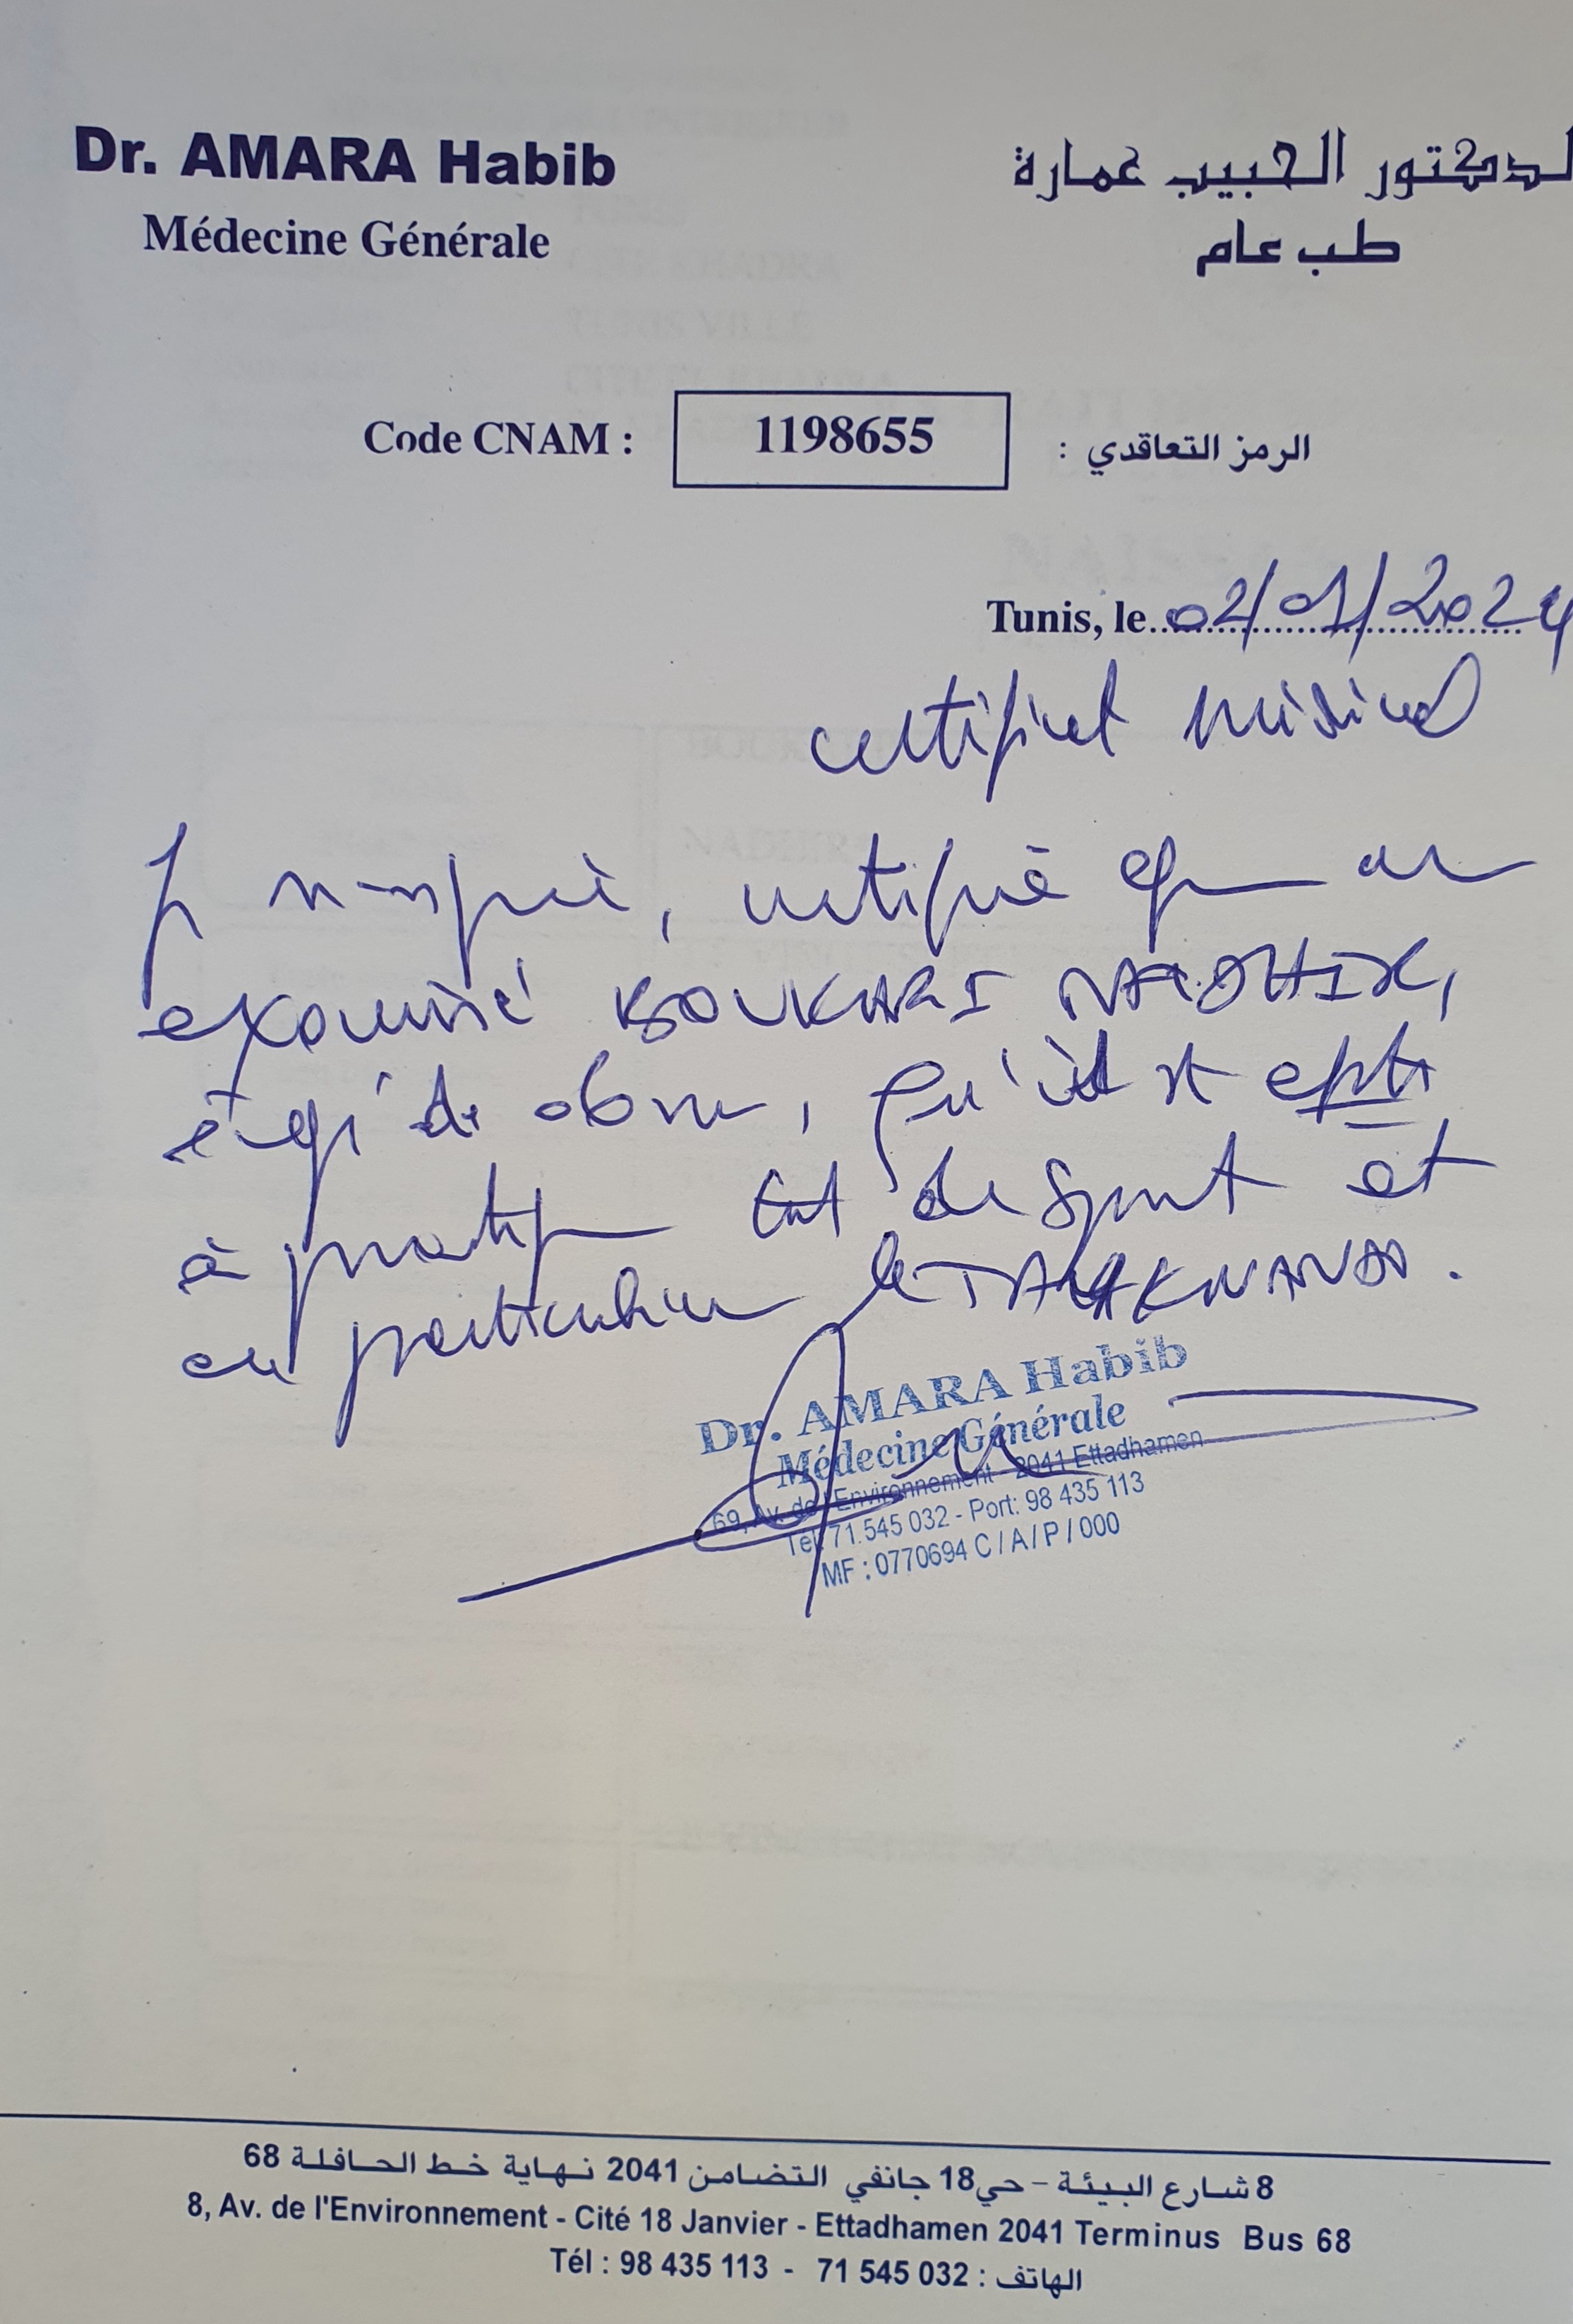 Dr. AMARA Habib
لدكتور الحبيب عمارة
Médecine Générale
طب عام
Code CNAM : 1198655 الرمز التعاقدي :
Tunis, le 02/01/2024
certificat médical
Je soussigné, certifie que
examiné BOUKHARI
âgé de, qu'il est apte
à pratiquer tout de sport et
en particulier le TAEKWONDO.
Dr. AMARA Habib
Médecine Générale
69, Av. de l'Environnement - 2041 Ettadhamen
Tél: 71.545 032 - Port: 98 435 113
MF : 0770694 C / A / P / 000
8 شارع البيئة - حي 18 جانفي التضامن 2041 نهاية خط الحافلة 68
8, Av. de l'Environnement - Cité 18 Janvier - Ettadhamen 2041 Terminus Bus 68
Tél : 98 435 113 - 71 545 032 : الهاتف